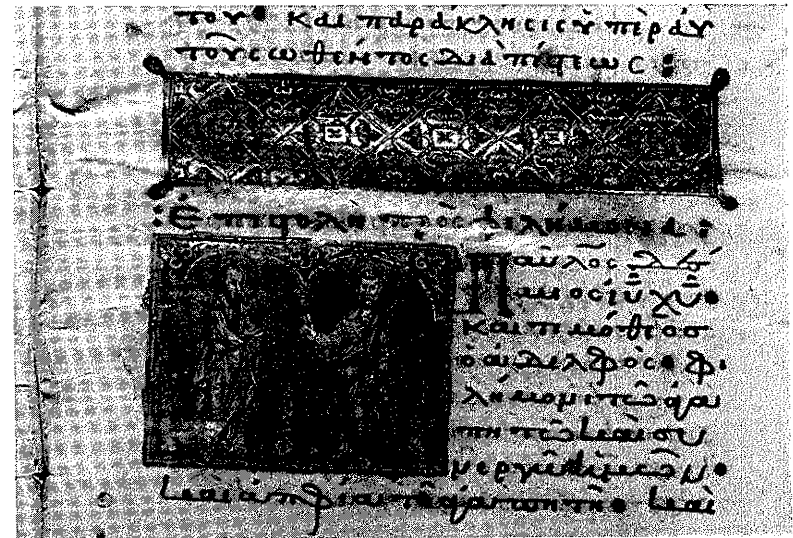 του· και παράκλησις ὑπὲρ αὐ
τοῦ σωθέντος διὰ πίστεως :
: Ἐπιστολὴ πρὸς φιλήμονα :
Παῦλος δέσ
μιος ἰῡ χῡ·
και τιμόθεος
ὁ ἀδελφὸς· φι
λήμονι τῶ ἀγα
πητῶ καὶ συ
νεργῶ ἡμῶν·
καὶ ἀπφίαι τῆ ἀγαπητῆ· καὶ